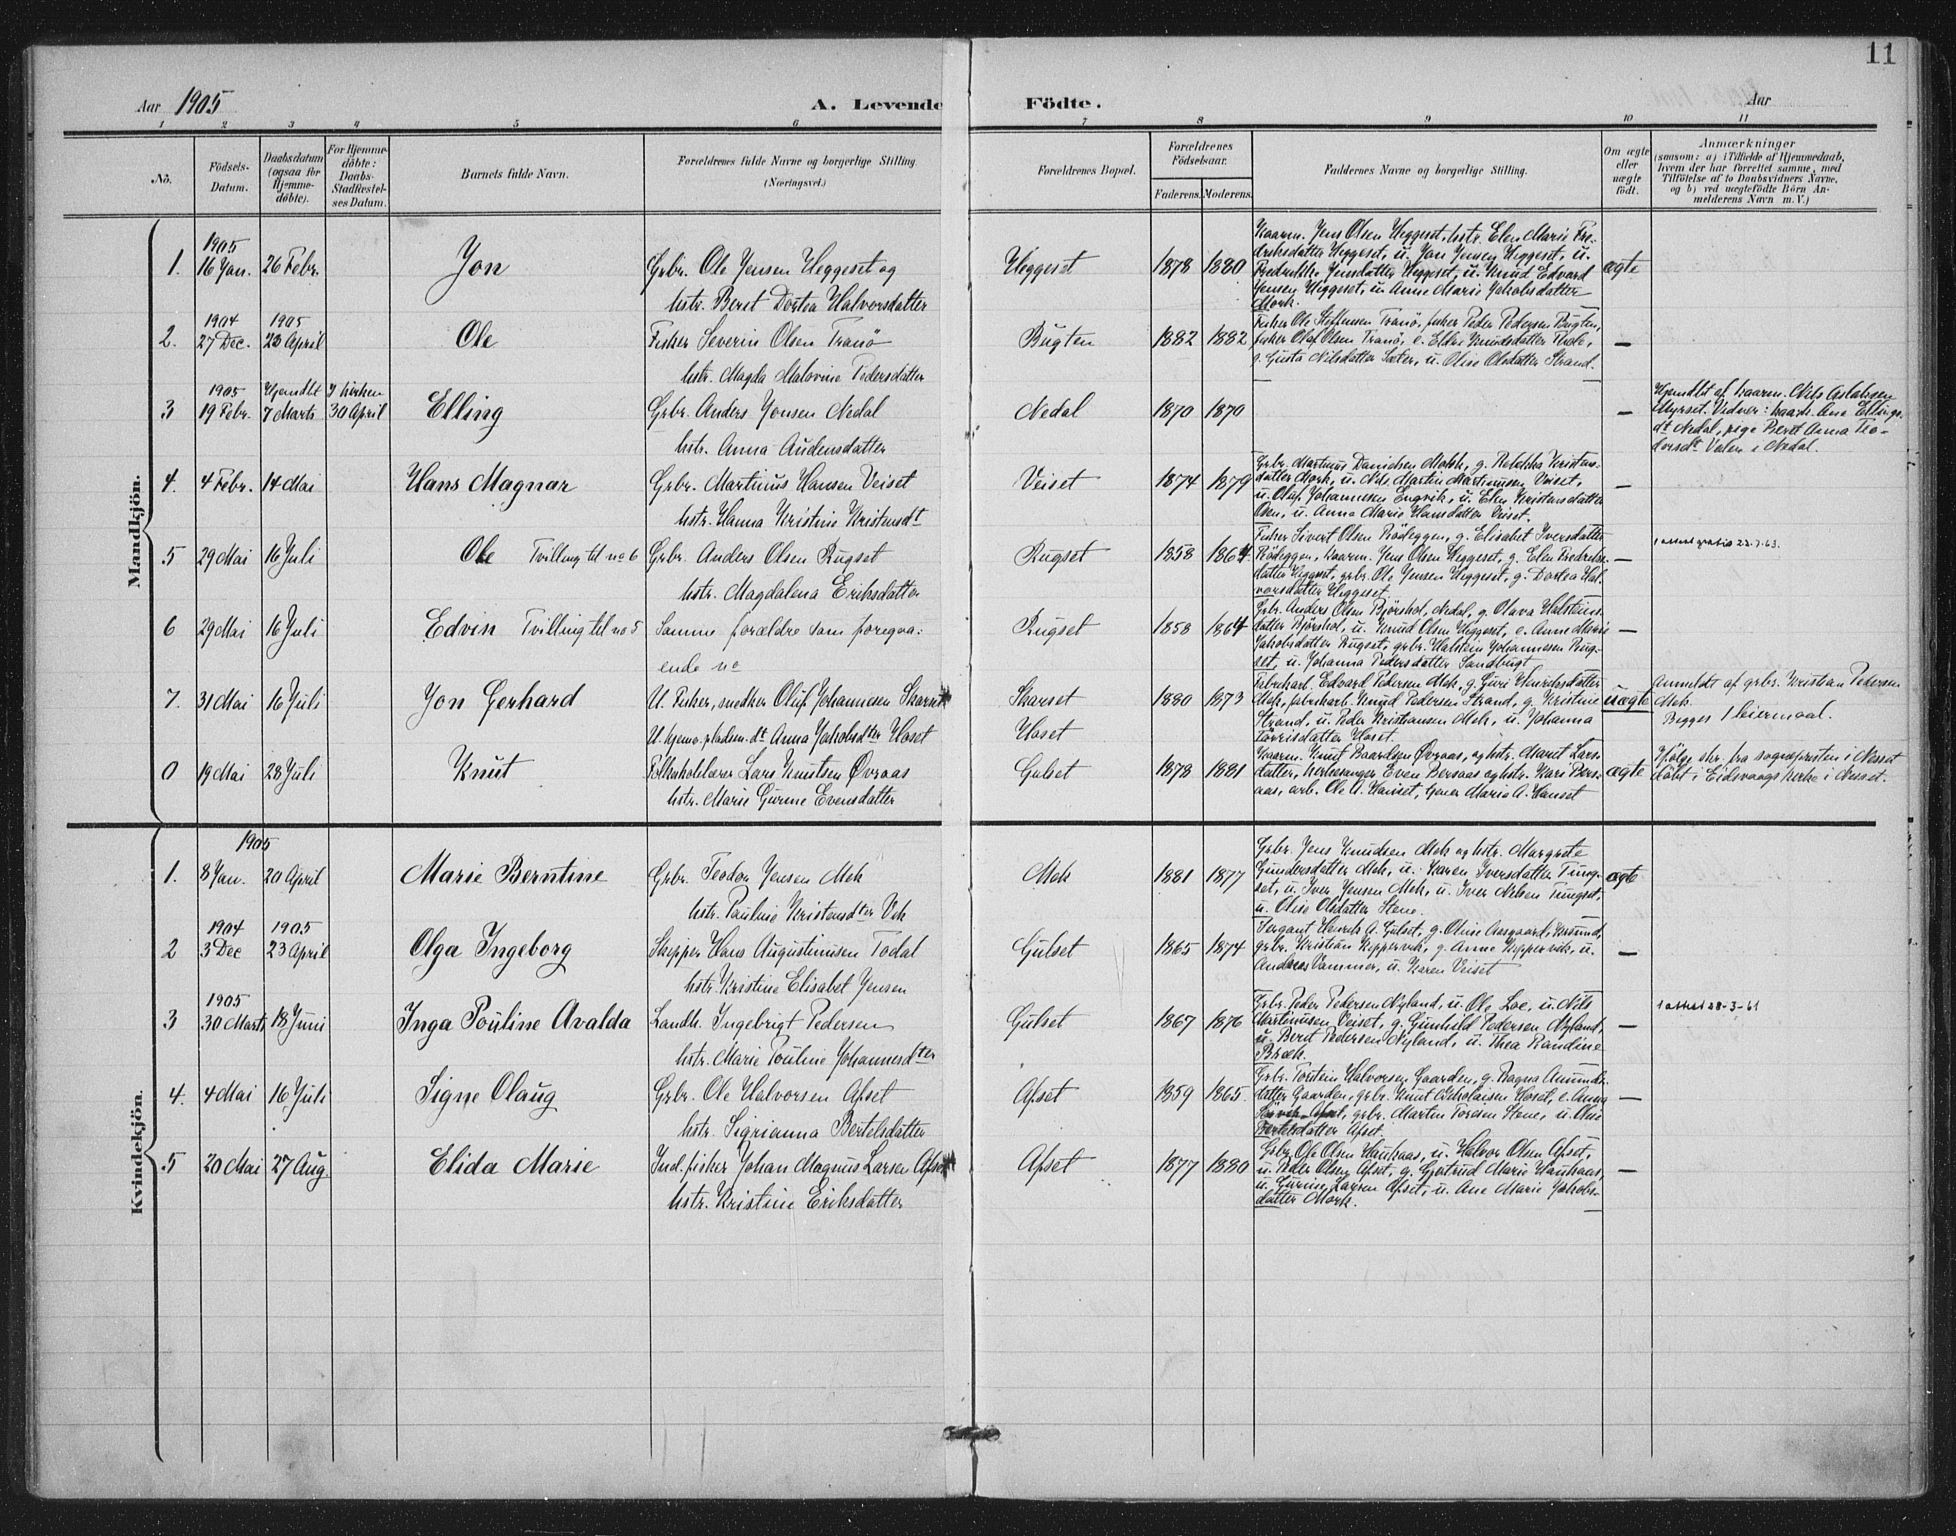 11
Aar 1905 A. Levende Födte. Aar
1 2 3 4 5 6 7 8 9 10 11
No. Födsels-Datum. Daabsdatum (ogsaa for Hjemmedøbte). For Hjemmedøbte: Daabs-Stadfæstelses Datum. Barnets fulde Navn. Forældrenes fulde Navne og borgerlige Stilling. (Næringsvei.) Forældrenes Bopæl. Forældrenes Födselsaar. Faderens. Moderens. Faddernes Navne og borgerlige Stilling. Om ægte eller uægte födt. Anmærkninger (saasom: a) i Tilfælde af Hjemmedaab, hvem der har forrettet samme, med Tilföielse af to Daabsvidners Navne, og b) ved uægtefödte Börn Anmelderens Navn m. V.)
Mandkjön.
1. 1905 16 Jan. 26 Febr. Jon Grbr. Ole Jensen Heggeset og
hstr. Beret Dortea Halvorsdatter
Heggeset 1878 1880 Kaarm. Jens Olsen Heggeset, hstr. Elen Marie Fre-
driksdatter Heggeset, u. Jon Jensen Heggeset, u.
Fredrikke Jensdatter Heggeset, u. Knud Edvard
Jensen Heggeset, u. Anne Marie Jakobsdatter
Mork. ægte
2. 1904 27 Dec. 1905 23 April Ole Fisker Severin Olsen Tranö
hstr. Magda Malovine Pedersdatter
Bugten 1882 1882 Fisker Ole Steffensen Tranö, fisker Peder Pedersen Bugten,
fisker Olaf Olsen Tranö, e. Eldri Knudsdatter
g. Gusta Nilsdatter Sæter, u. Olise Olsdatter Strand. —
3 1905 19 Febr. Hjemdbt 7 Marts I kirken 30 April Elling Grbr. Anders Jonsen Nedal
hstr. Anna Audensdatter
Nedal 1870 1870 — Hjemdbt af kaarm. Nils Aslaksen
Myrset. Vidner: kaark. Ane Ellings-
dt Nedal, pige Berit Anna Teo-
dorsdt Valen i Nedal.
4. 4 Febr. 14 Mai Hans Magnar Grbr. Martinus Hansen Veiset
hstr. Hanna Kristine Kristensdt
Veiset 1874 1879 Grbr. Martinus Danielsen Mork, g. Rebekka Kristens-
datter Mork, u. Nils Martin Martinusen Veiset,
u. Oluf Johannesen Engvik, u. Elen Kristensdatter
Osen, u. Anna Marie Hansdatter Veiset. —
5 29 Mai 16 Juli Ole Tvilling til no 6 Grbr. Anders Olsen Rugset
hstr. Magdalena Eriksdatter
Rugset 1858 1864. Fisker Sivert Olsen Rödeggen, g. Elisabet Iversdatter
Rödeggen, kaarm. Jens Olsen Heggeset, g. Elen Fredriks-
datter Heggeset, grbr. Ole Jensen Heggeset, g. Dortea Hal-
vorsdatter Heggeset. — 1 attest gratis 23.7.63.
6 29 Mai 16 Juli Edvin Tvilling til no 5 Samme forældre som foregaa-
ende no
Rugset 1858 1864 Grbr. Anders Olsen Bjørshol, Nedal, g. Olava Halsteins-
datter Bjørshol, u. Knud Olsen Heggeset, e. Anne Marie
Jakobsdatter Rugset, grbr. Halstein Johannesen Rug-
set, u. Johanna Pedersdatter Sandbugt —
7. 31 Mai 16 Juli Jon Gerhard U. Fisker, snedker Oluf Johannesen Skarset
U. hjemv. pladsm. dt Anna Jakobsdter Hoset
Skarset
Hoset
1880 1873 Fabrikarb. Edvard Pedersen Mek, g. Guri Henriksdatter
Mek, fabrikarb. Knud Pedersen Strand, g. Kristine
Strand, u. Peder Kristiansen Mek, u. Johanna
Torrisdatter Hoset. uægte Anmeldt af grbr. Kristian Pedersen
Mek.
Begges 1 leiermaal.
0 19 Mai 28 Juli Knut Folkeskolelærer Lars Knutsen Øvraas
hstr. Marie Gurine Evensdatter
Gulset 1878 1881 Kaarm. Knut Baardsen Øvraas, og hstr. Marit Lars-
datter, kirkesanger Even Bersaas og hstr. Kari Bers-
aas, arb. Ole A. Hanset, Marie A. Hanset ægte Ifølge skr. fra sogneprsten i Nesset
döbt i Eidsvaags kirke i Nesset.
Kvindekjön.
1. 1905 8 Jan. 20 April Marie Berntine Grbr. Teodor Jensen Mek
hstr. Pauline Kristensdter Vik
Mek 1881 1877 Grbr. Jens Knudsen Mek og hstr. Margrete
Gundersdatter Mek, u. Karen Iversdatter Tung-
set, u. Iver Jensen Mek, u. Iver Nilsen Tungset,
u. Olise Olsdatter Stene. ægte
2 1904 3 Dec 1905 23 April Olga Ingeborg Skipper Hans Augustinusen Todal
hstr. Kristine Elisabet Jensen
Gulset 1865 1874 Sergant Henrik A. Gulset, g. Oline Aasgaard, Krsund,
grbr. Kristian Keppervik, g. Anne Keppervik, u.
Andreas Vammer, u. Karen Veiset —
3 1905 30 Marts 18 Juni Inga Pouline Avalda Landh. Ingebrigt Pedersen
hstr. Marie Pouline Johannesdter
Gulset 1867 1876 Grbr. Peder Pedersen Nyland, u. Ole Loe, u. Nils
Martinusen Veiset, g. Gunhild Pedersen Nyland,
u. Berit Pedersen Nyland, u. Thea Randine
Bræk. — 1 attest 28-3-61
4. 4 Mai 16 Juli Signe Olaug Grbr. Ole Halvorsen Afset
hstr. Sigrianna Bertelsdatter
Afset 1859 1865. Grbr. Torstein Halvorsen Gaarden, g. Ragna Amunds-
datter Gaarden, grbr. Knut Nikolaisen Hoset, e. Anna
Afset, grbr. Martin Toresen Stene, u. Oline
Bertelsdatter Afset. —
5 20 Mai 27 Aug Elida Marie Ind. fisker Johan Magnus Larsen Afset
hstr. Kristine Eriksdatter
Afset 1877 1880 Grbr Ole Olsen Hauhaas, u. Halvor Olsen Afset,
u. Peder Olsen Afset, g. Gjertrud Marie Hauhaas,
u. Gurine Larsen Afset, u. Ane Marie Jakobs-
datter Mork. —